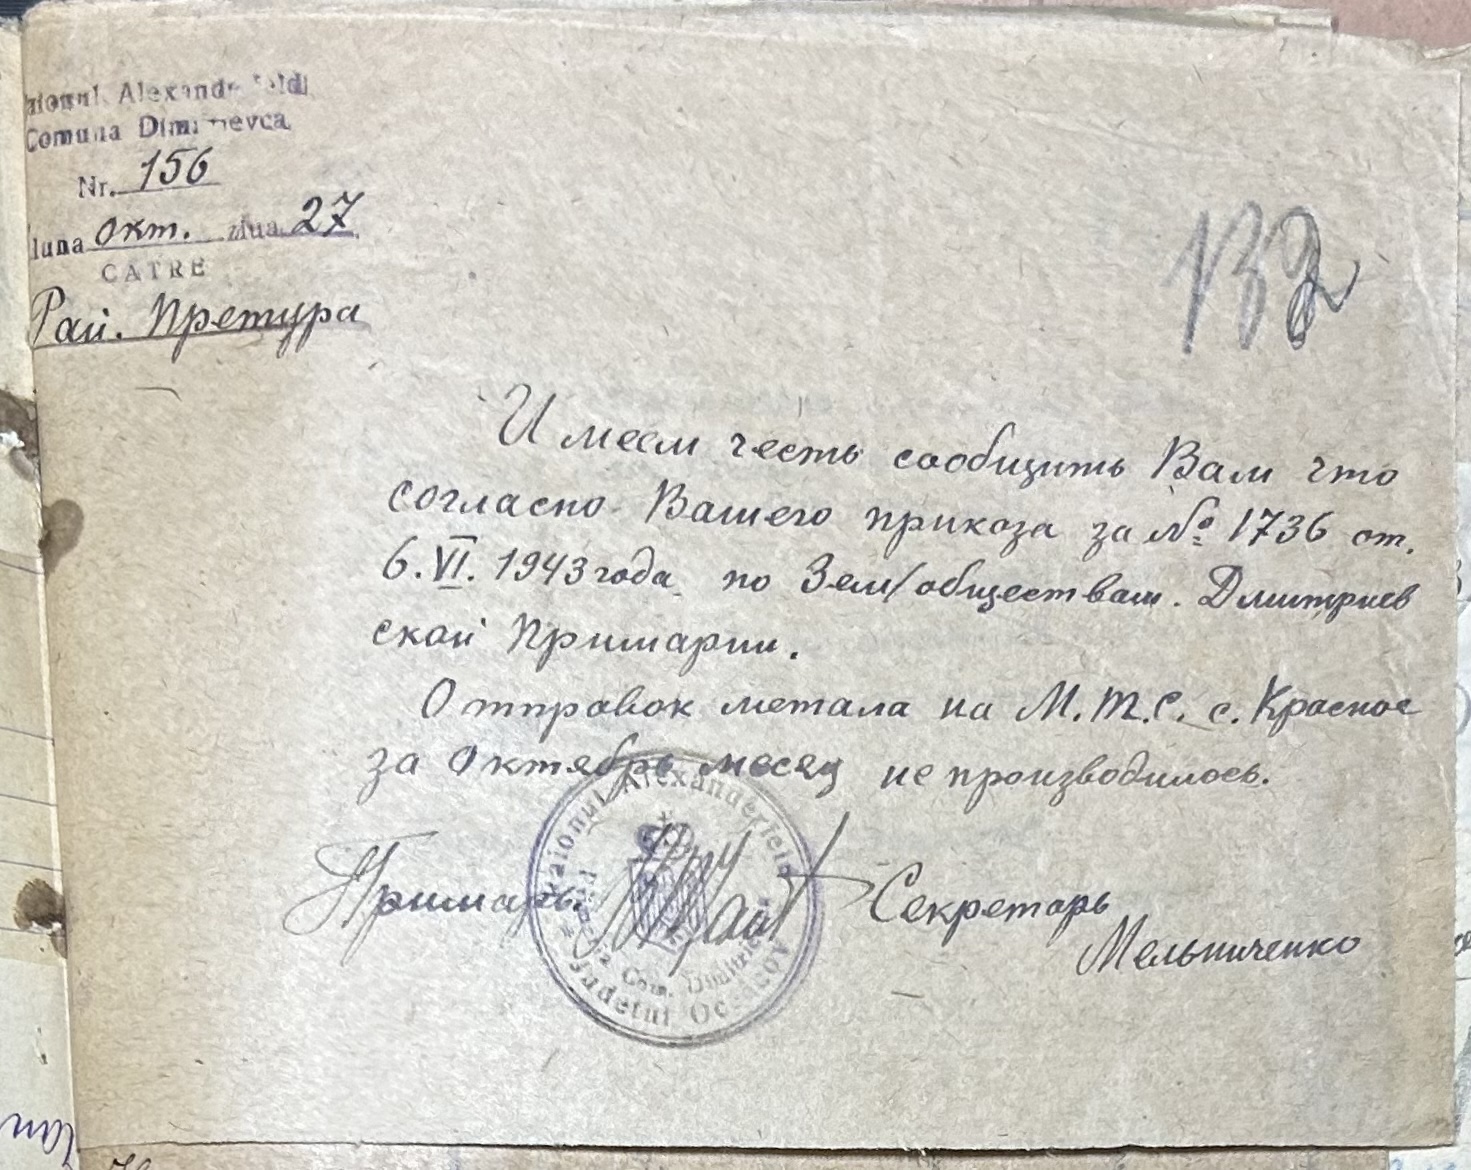 aionul Alexanderfeld
Comuna Dimitrievca
Nr. 156
luna окт. ziua 27
CATRE
Рай. Претура
132
Имеем честь сообщить Вам что
согласно Вашего приказа за № 1736 от.
6.VI. 1943 года по Зем/обществам. Дмитриев
ской Примарии.
Отправок метала на М.Т.С. с. Красное
за Октябрь месяц не производилось.
Примарь. Секретарь
Мельниченко
Raionul Alexanderfeld
Com. Dimitrievca
Judetul Oceacov